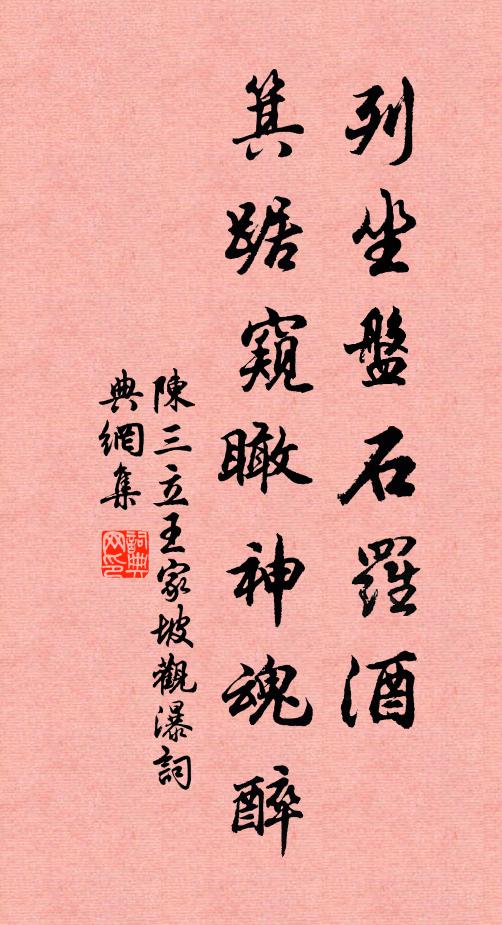 列坐盤石羅酒
箕踞窺瞰神魂醉
陳三立王家坡觀瀑詞
典網集
詞典
网印